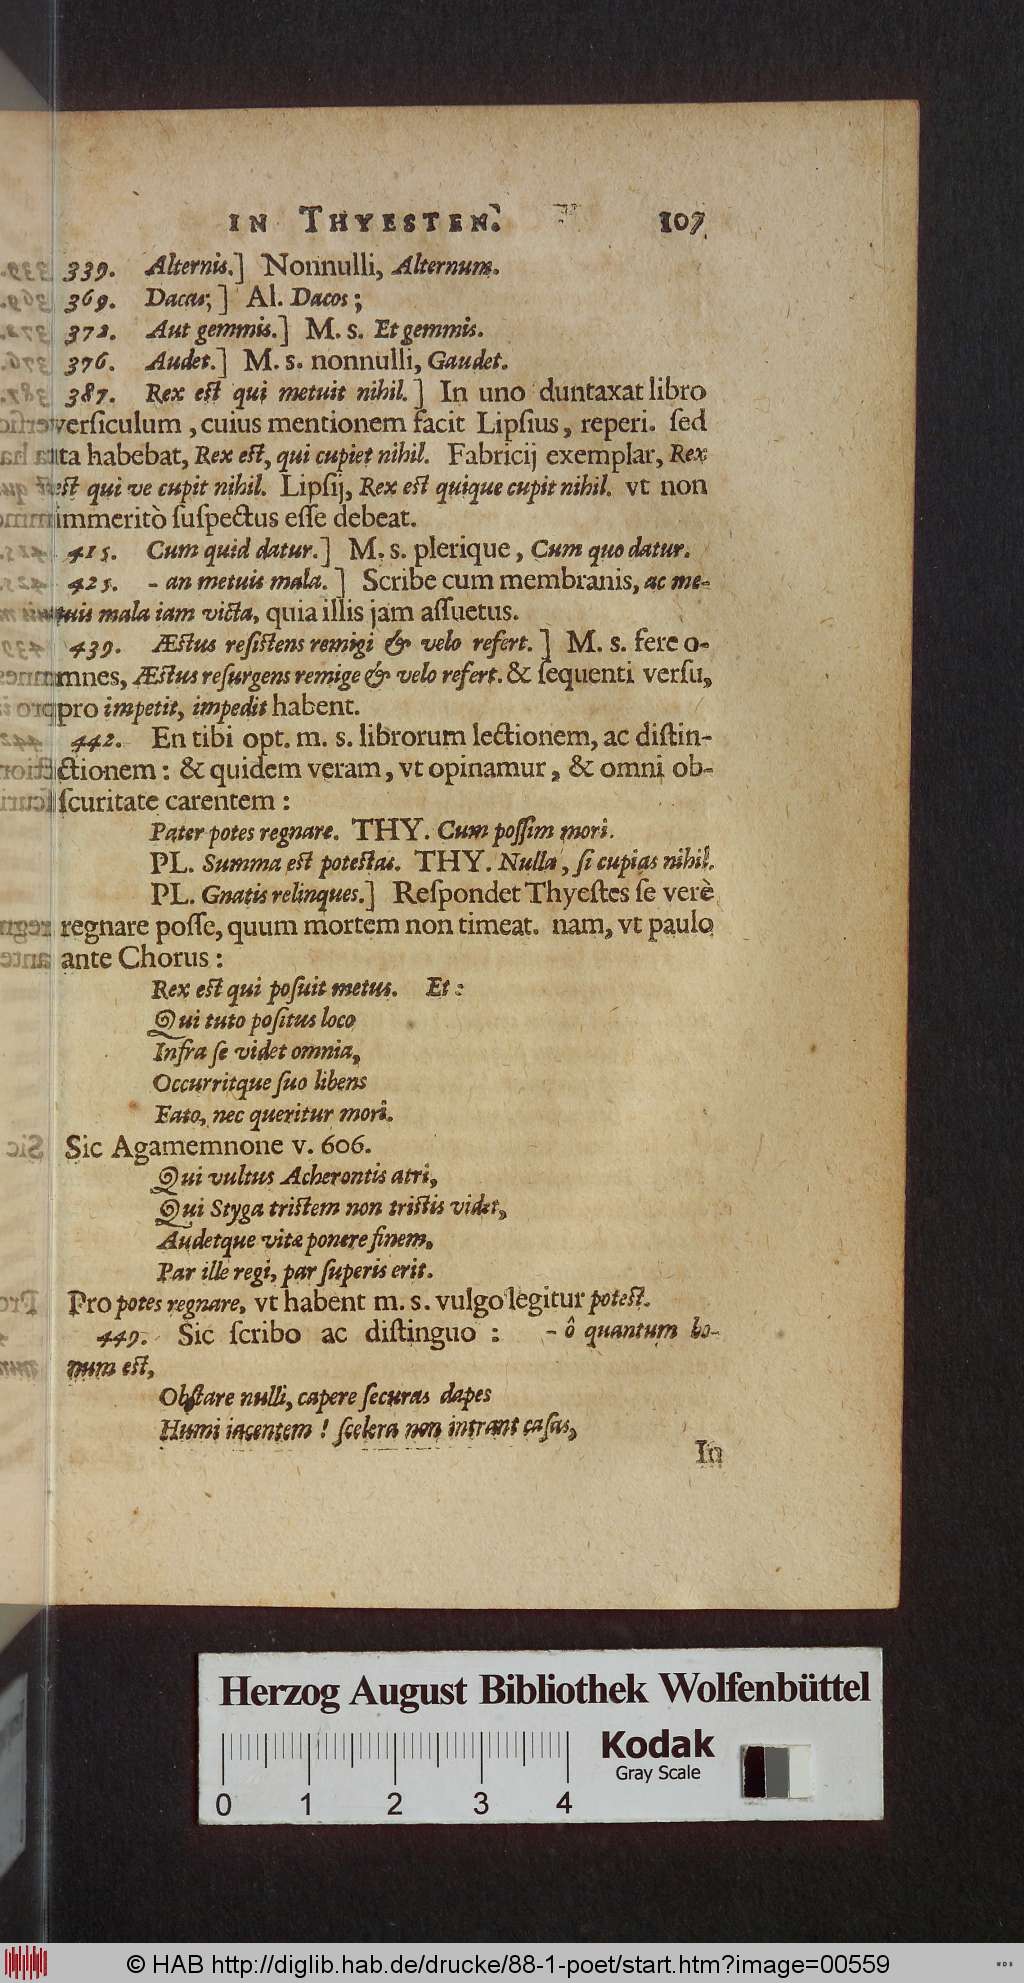 IN THYESTEN. 107
339. Alternis.] Nonnulli, Alternum.
369. Dacas;] Al. Dacos;
372. Aut gemmis.] M. s. Et gemmis.
376. Audet.] M. s. nonnulli, Gaudet.
387. Rex est qui metuit nihil.] In uno duntaxat libro
versiculum, cuius mentionem facit Lipsius, reperi. sed
ita habebat, Rex est, qui cupiet nihil. Fabricij exemplar, Rex
est qui ve cupit nihil. Lipsij, Rex est quique cupit nihil. vt non
immeritò suspectus esse debeat.
415. Cum quid datur.] M. s. plerique, Cum quo datur.
425. - an metuis mala.] Scribe cum membranis, ac me-
tuis mala iam victa, quia illis jam assuetus.
439. Æstus resistens remigi & velo refert.] M. s. fere o-
mnes, Æstus resurgens remige & velo refert. & sequenti versu,
pro impetit, impedit habent.
442. En tibi opt. m. s. librorum lectionem, ac distin-
ctionem: & quidem veram, vt opinamur, & omni ob-
scuritate carentem:
Pater potes regnare. THY. Cum possim mori.
PL. Summa est potestas. THY. Nulla, si cupias nihil.
PL. Gnatis relinques.] Respondet Thyestes se verè
regnare posse, quum mortem non timeat. nam, vt paulo
ante Chorus:
Rex est qui posuit metus. Et:
Qui tuto positus loco
Infra se videt omnia,
Occurritque suo libens
Fato, nec queritur mori.
Sic Agamemnone v. 606.
Qui vultus Acherontis atri,
Qui Styga tristem non tristis videt,
Audetque vitæ ponere finem,
Par ille regi, par superis erit.
Pro potes regnare, vt habent m. s. vulgo legitur potest.
449. Sic scribo ac distinguo: - ô quantum bo-
num est,
Obstare nulli, capere securas dapes
Humi iacentem! scelera non intrant casas,
In
Herzog August Bibliothek Wolfenbüttel
Kodak
Gray Scale
0 1 2 3 4
© HAB http://diglib.hab.de/drucke/88-1-poet/start.htm?image=00559